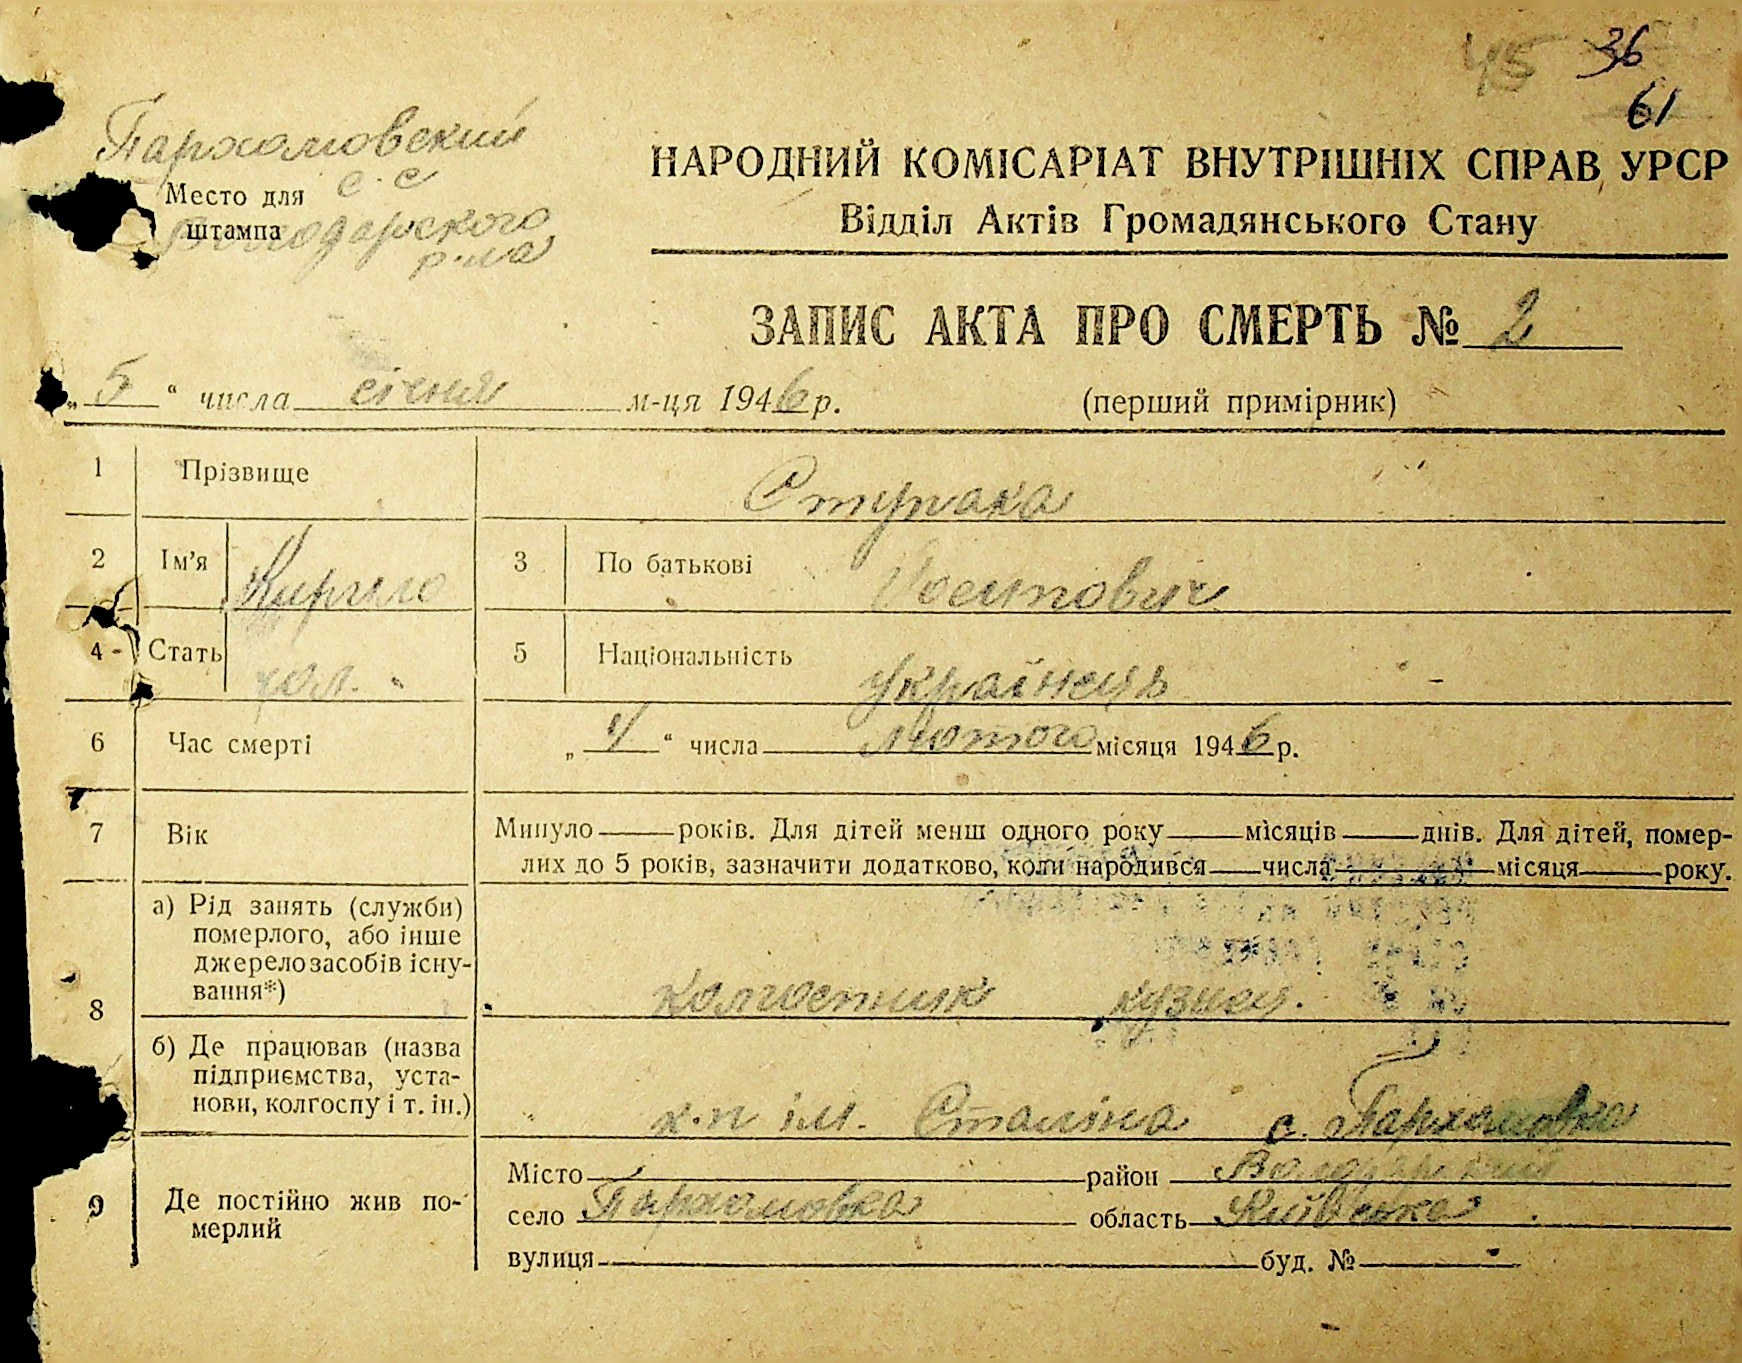 45 36
61
Пархамовский
с. с
Место для
штампа
Володарского
р-на
НАРОДНИЙ КОМІСАРІАТ ВНУТРІШНІХ СПРАВ УРСР
Відділ Актів Громадянського Стану
ЗАПИС АКТА ПРО СМЕРТЬ № 2
„ 5 “ числа січня м-ця 1946 р. (перший примірник)
1 Прізвище Стурака
2 Ім'я Кирило 3 По батькові Йосипович
4 Стать чол. 5 Національність українець
6 Час смерті „ 4 “ числа лютого місяця 1946 р.
7 Вік Минуло — років. Для дітей менш одного року — місяців — днів. Для дітей, помер-
лих до 5 років, зазначити додатково, коли народився — числа — місяця — року.
8 а) Рід занять (служби)
померлого, або інше
джерело засобів існу-
вання*) колгоспник кузнец.
б) Де працював (назва
підприємства, уста-
нови, колгоспу і т. ін.) к-п ім. Сталіна с. Пархамовка
9 Де постійно жив по-
мерлий
Місто район Володарский
село Пархамовка область Київська
вулиця буд. №